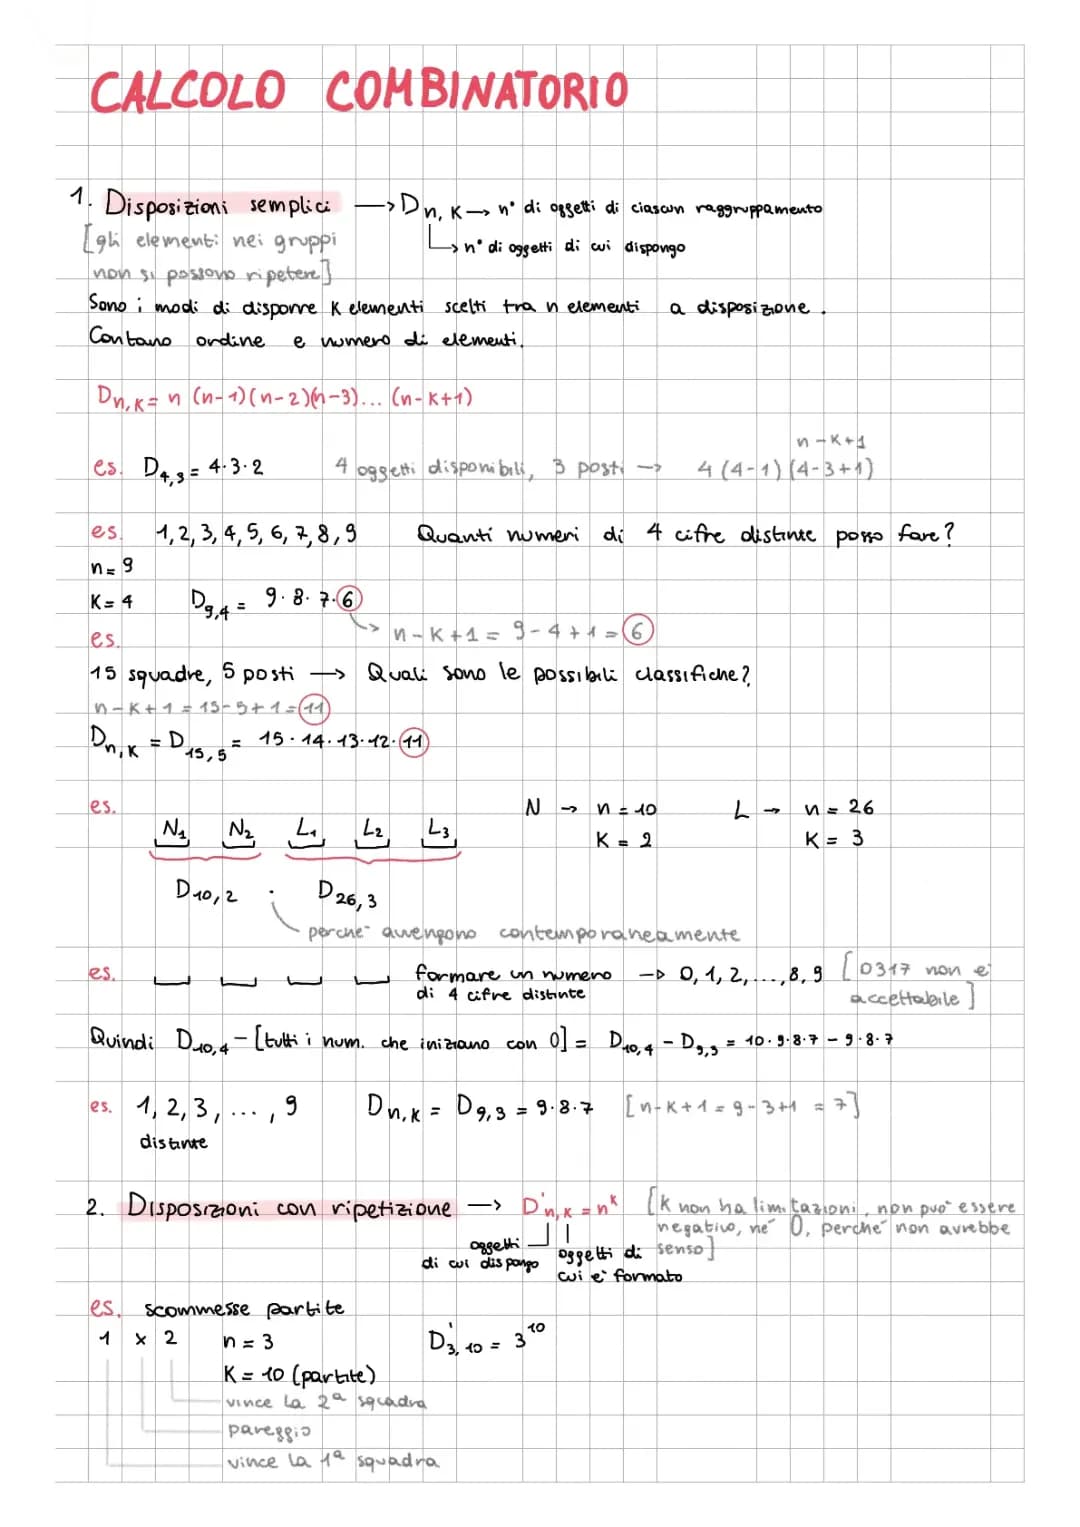 CALCOLO COMBINATORIO
1. Disposizioni semplici → Dn, K → n° di oggetti di ciascun raggruppamento
[gli elementi nei gruppi ↳ n° di oggetti di cui dispongo
non si possono ripetere]
Sono i modi di disporre K elementi scelti tra n elementi a disposizione.
Contano ordine e numero di elementi.
Dn,K = n (n-1)(n-2)(n-3)... (n-K+1)
n-K+1
es. D4,3 = 4·3·2 4 oggetti disponibili, 3 posti → 4(4-1)(4-3+1)
es. 1,2,3,4,5,6,7,8,9 Quanti numeri di 4 cifre distinte posso fare?
n=9
K=4 D9,4 = 9·8·7·6
→ n-K+1 = 9-4+1 = 6
es.
15 squadre, 5 posti → Quali sono le possibili classifiche?
n-K+1 = 15-5+1 = 11
Dn,K = D15,5 = 15·14·13·12·11
es. N → n=10 L → n=26
N1 N2 L1 L2 L3 K=2 K=3
D10,2 · D26,3
perché avvengono contemporaneamente
es. formare un numero → 0,1,2,...,8,9 [0317 non è
di 4 cifre distinte accettabile]
Quindi D10,4 - [tutti i num. che iniziano con 0] = D10,4 - D9,3 = 10·9·8·7 - 9·8·7
es. 1,2,3,...,9 Dn,K = D9,3 = 9·8·7 [n-K+1 = 9-3+1 = 7]
distinte
2. Disposizioni con ripetizione → D'n,K = n^K [K non ha limitazioni, non può essere
negativo, né 0, perché non avrebbe
senso]
oggetti di cui dispongo
oggetti di cui è formato
es. scommesse partite
1 x 2 n=3 D'3,10 = 3^10
K=10 (partite)
vince la 2ª squadra
pareggio
vince la 1ª squadra